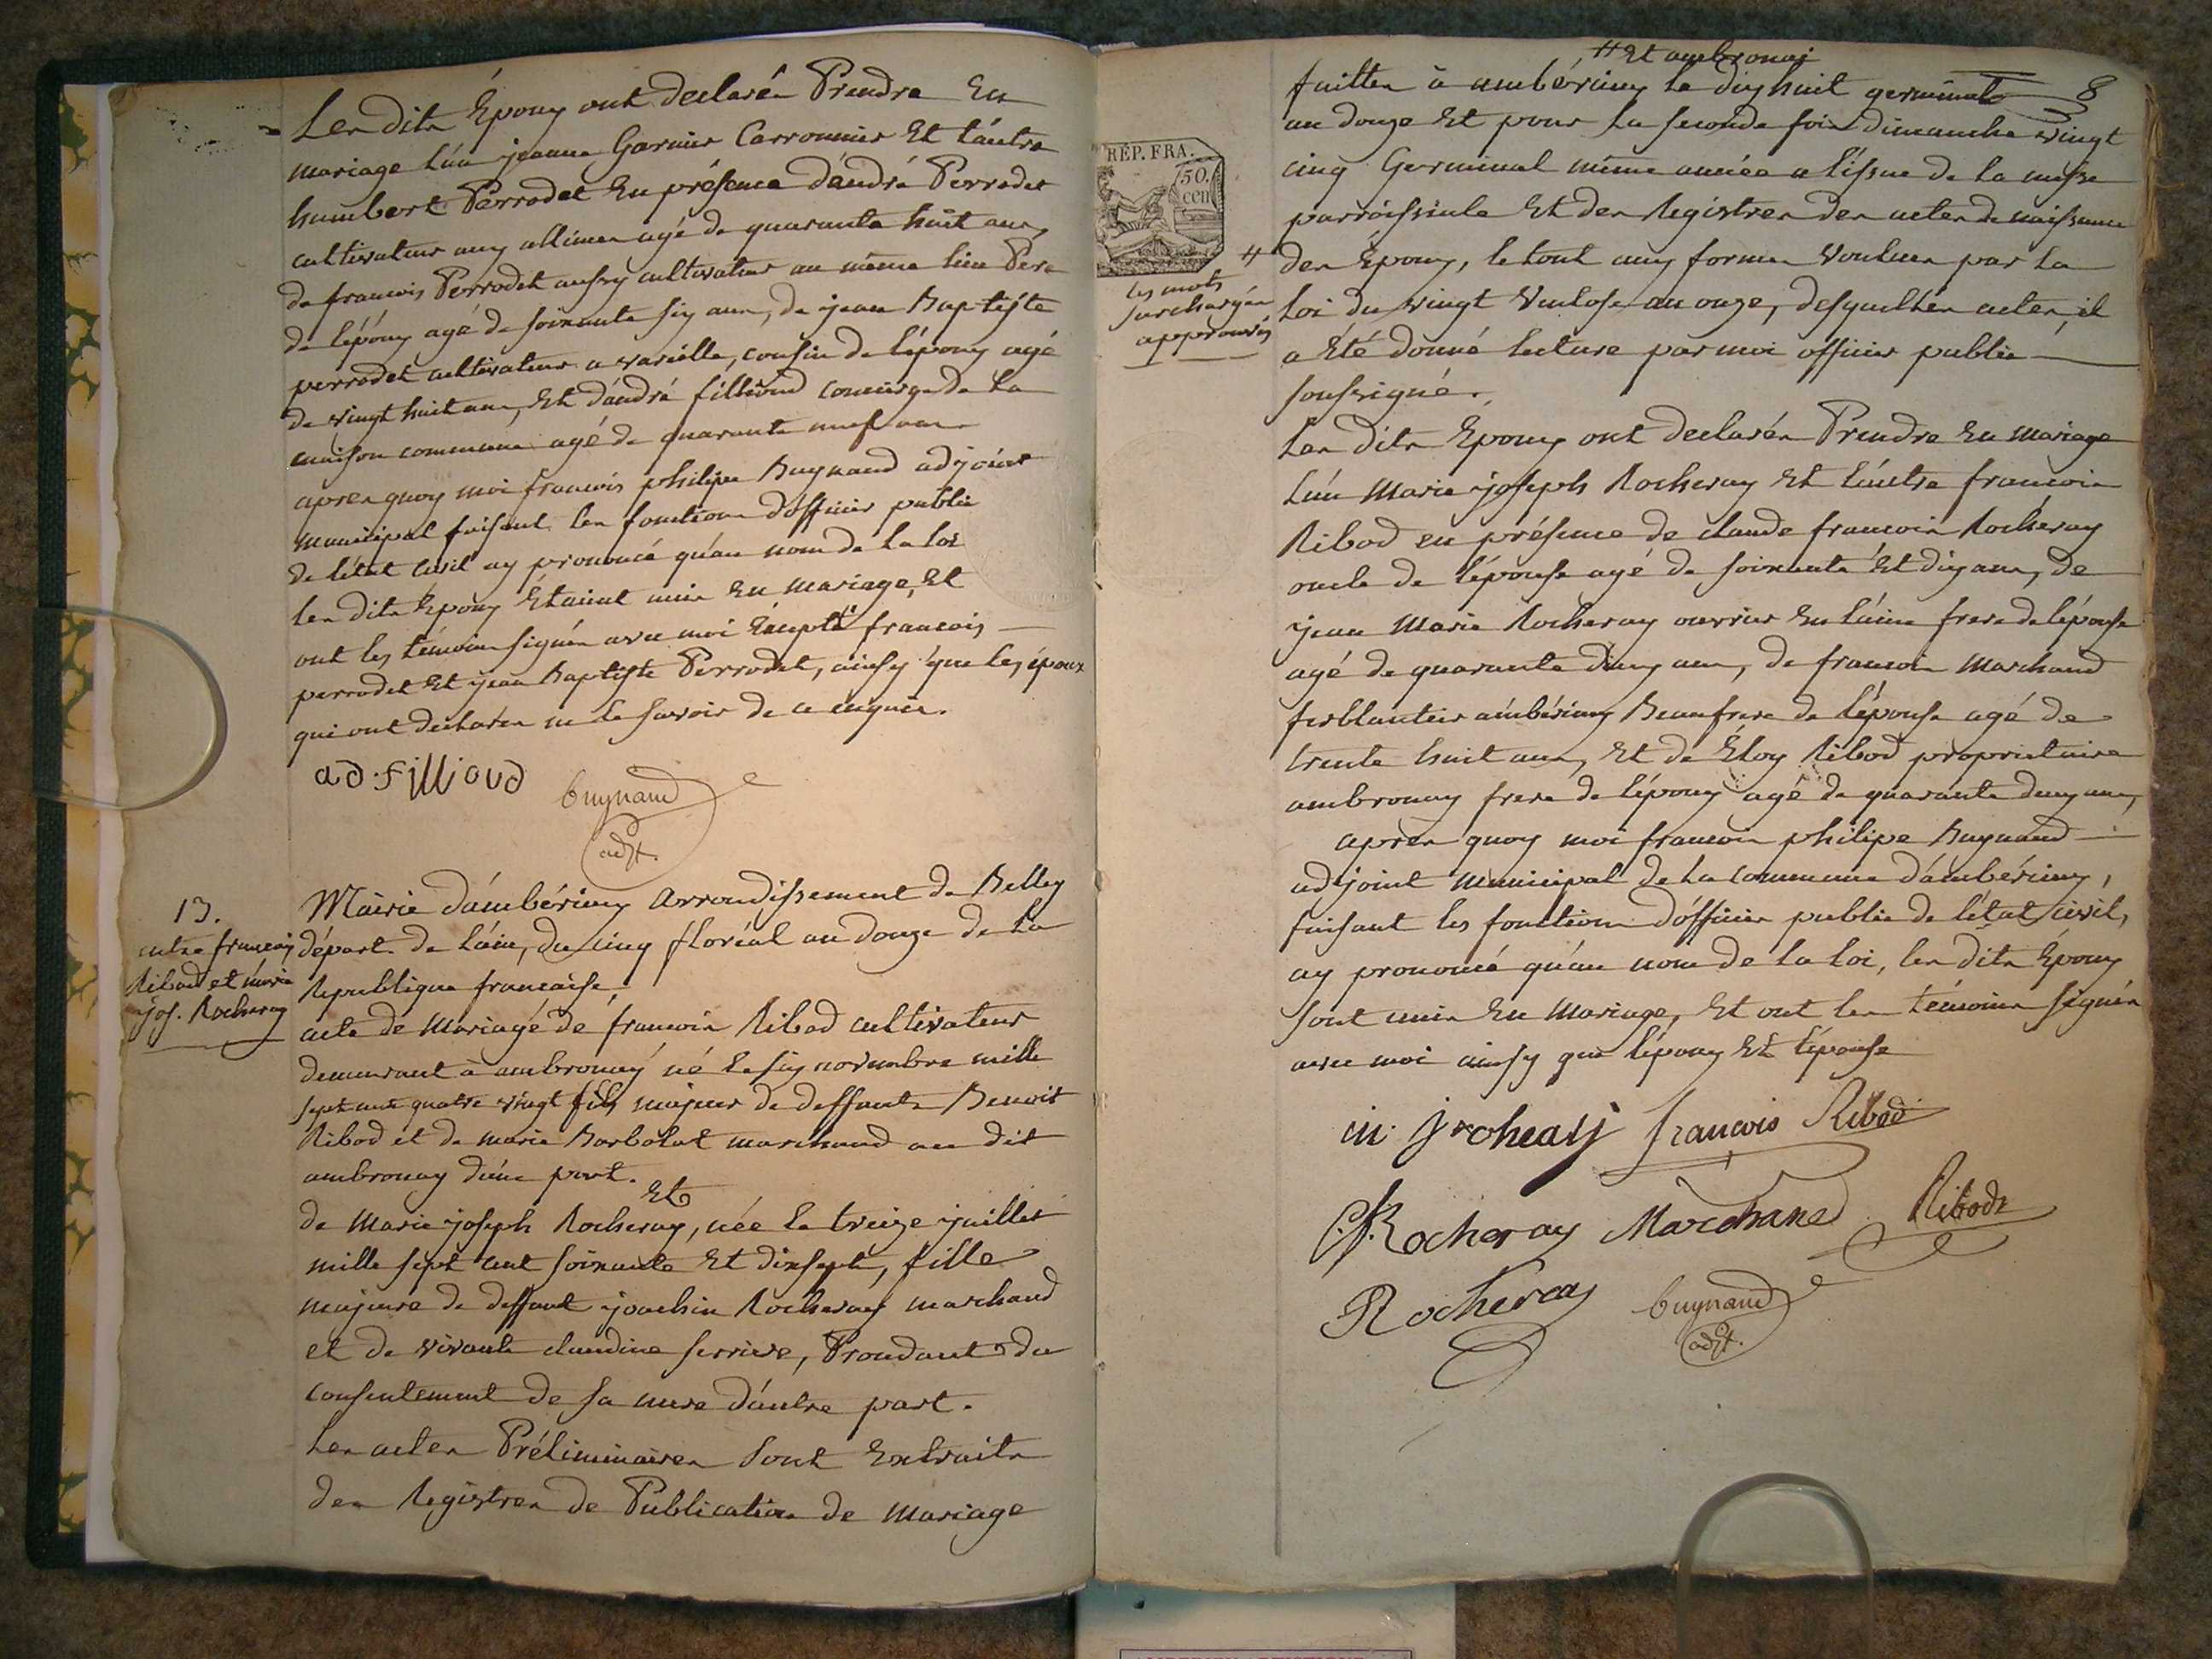 Les dits Époux ont declarés Prendre En
mariage l'un jeanne Garnier Carronnier Et l'autre
humbert Perrodet En présence d'andré Perrodet
cultivateur aux allimes agé de quarante huit ans,
de francois Perrodet aussy cultivateur au même lieu Pere
de l'époux agé de soixante six ans, de jean Baptiste
perrodet cultivateur a vareille, cousin de l'époux agé
de vingt huit ans, Et d'andré fillioud concierge de la
maison commune agé de quarante neuf ans
apres quoy moi francois philipe Buynand adjoint
municipal faisant les fonctions d'officier public
de l'état civil ay prononcé qu'au nom de la loi
les dits Époux Étaient unis En mariage, Et
ont les témoins signés avec moi Éxcepté francois
perrodet Et jean Baptiste Perrodet, ainsy que les époux
qui ont declarés ne le savoir de ce enquis.
ad. fillioud
buynand
adjt.
13.
entre francois
Ribod et marie
jos. Rocheray
Mairie d'ambérieux arrondissement de Belley
départ. de l'ain, du cinq floréal an douze de la
Republique francaise,
acte de Mariage de francois Ribod cultivateur
demeurant à ambronay né le six novembre mille
sept cent quatre vingt fils majeur de deffunts Benoit
Ribod et de marie Barbolat marchand au dit
ambronay d'une part.
Et
de Marie joseph Rocheray, née le treize juillet
mille sept cent soixante Et dixsept, fille
majeure de deffunt joachin Rocheray marchand
et de vivante claudine serrive, Procedant du
consentement de sa mere d'autre part.
Les actes Préliminaires Sont Extraits
des Registres de Publication de mariage
# Et ambronai
8
faittes à ambérieux le dixhuit germinal
an douze Et pour la seconde fois dimanche vingt
cinq Germinal même année a l'issue de la messe
parroissiale Et des Registres des actes de naissance
des Époux, le tout aux formes voulues par la
Loi du vingt ventose an onze, desquelles actes, il
a Été donné lecture par moi officier public
soussigné.
REP. FRA.
50.
cen
#
les mots
surchargés
approuvés
Les dits Époux ont declarés Prendre En mariage
l'un Marie joseph Rocheray Et l'autre francois
Ribod en présence de claude francois Rocheray
oncle de l'épouse agé de soixante Et dix ans, de
jean Marie Rocheray ouvrier En laine frere de l'épouse
agé de quarante deux ans, de francois Marchand
ferblantier ambérieux Beaufrere de l'épouse agé de
trente huit ans, Et de Éloy Ribod proprietaire
ambronay frere de l'époux agé de quarante deux ans,
apres quoy moi francois philipe Buynand
adjoint municipal de la commune d'ambérieux,
faisant les fonctions d'officier public de l'état civil,
ay prononcé qu'au nom de la loi, les dits Époux
sont unis En Mariage, Et ont les témoins signés
avec moi ainsy que l'époux Et l'épouse
francois Ribod
C.f. Rocheray Marchand Ribod
Rocheray
buynand
adjt.